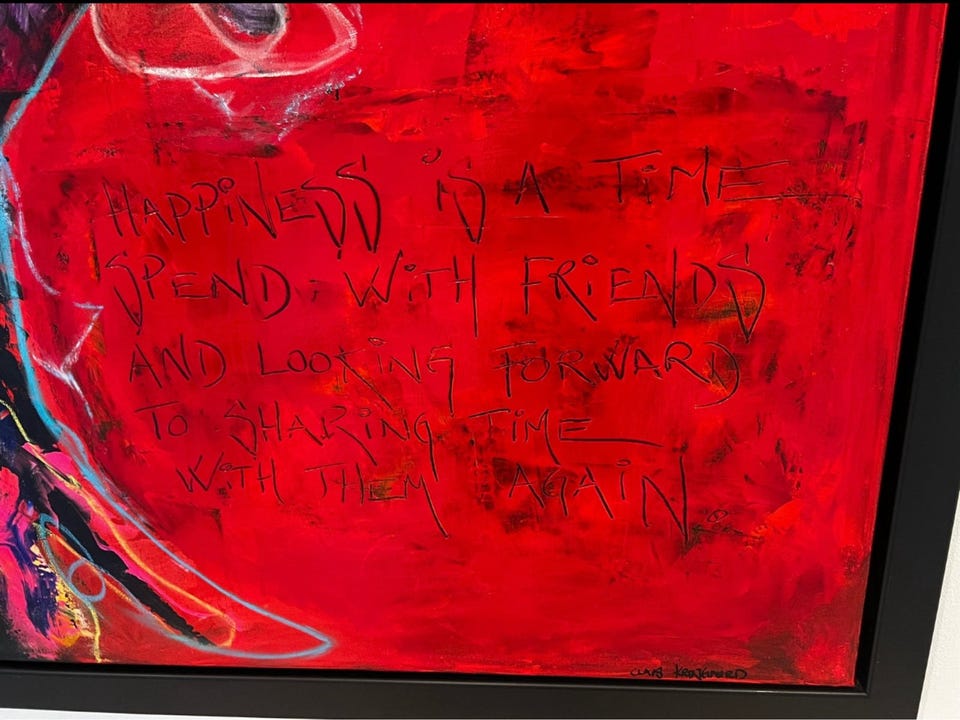 HAPPiNESS iS A TiME
SPEND. WiTH FRiENDS
AND LOOKiNG FORWARD
TO SHARiNG TiME
WiTH THEM AGAiN